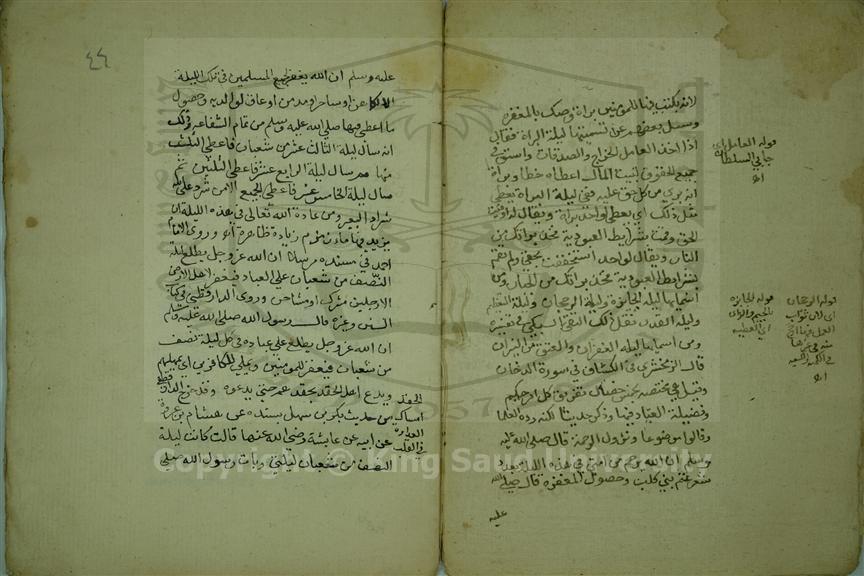 لانه يكتب فيها للمؤمنين براة وصك بالمغفرة
وسئل بعضهم عن تسميتها ليلة البراة فقال
اذا اخذ العامل الخراج والصدقات واستوفى
جميع الحقوق لبيت المال اعطاه خطا وبراة
انه بري من كل حق عليه ففي ليلة البراة يعطى
مثل ذلك اي يعطى لواحد براة ويقال له اوفيت
الحق وقمت بشرايط العبودية فخذ براتك من
النار ويقال لواحد استخففت بحقي ولم تقم
بشرايط العبودية فخذ براتك من الجنان ومن
اسمايها ليلة الجايزة وليلة الرجحان وليلة التعظيم
وليلة القدر نقل ذلك التقي السبكي في تفسيره
ومن اسمايها ليلة الغفران والعتق من النيران
قال الزمخشري في الكشاف في سورة الدخان
وقيل هي مختصة بخمس خصال تفريق كل امر حكيم
وفضيلة العبادة فيها وذكر حديثا لكنه رده العلما
وقالوا موضوعا ونزول الرحمة قال صلى الله عليه
وسلم ان الله يرحم من امتي في هذه الليلة بعدد
شعر غنم بني كلب وحصول المغفرة قال صلى الله
عليه
قوله العامل اي
جابي السلطان
اه
قوله الجايزه
بالجيم والزاي
اي العطيه
قوله الرجحان
اي لان ثواب
العمل فيها ارجح
منه في غيرها
اه
٤٤
عليه وسلم ان الله يغفر لجميع المسلمين في تلك الليلة
الا لكاهن او ساحر او مدمن او عاق لوالديه وحصول
ما اعطي فيها صلى الله عليه وسلم من تمام الشفاعه وذلك
انه سال ليلة الثالث عشر من شعبان فاعطي الثلث
منها ثم سال ليلة الرابع عشر فاعطي الثلثين ثم
سال ليلة الخامس عشر فاعطي الجميع الا من شرد على الله
شراد البعير ومن عادة الله تعالى في هذه الليلة ان
يزيد فيها ماء زمزم زيادة ظاهرة اه وروى الامام
احمد في مسنده مرسلا ان الله عز وجل يطلع ليلة
النصف من شعبان على العباد فيغفر لاهل الارض
الا رجلين مشرك او مشاحن وروى الدارقطني في كتاب
السنن وغيره قال رسول الله صلى الله عليه وسلم
ان الله عز وجل يطلع على عباده في كل ليلة نصف
من شعبان فيغفر للمومنين ويملي للكافرين اي يمهلهم
ويدع اهل الحقد بحقدهم حتى يدعوه وقد خرج الدارقطني
من حديث بكر بن سهل بسنده عن هشام بن عروة
عن ابيه عن عايشة رضي الله عنها قالت كانت ليلة
النصف من شعبان ليلتي وبات رسول الله صلى
الحقد
امساك
العداوه
في القلب
Copyright © King Saud University